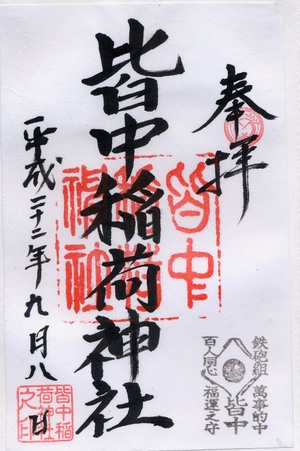 奉拝
皆中稲荷神社
平成二十二年九月八日
皆中
稲荷
神社
鉄砲組
百人同心
萬事的中
福運之守
皆中
皆中稲
荷神社
之印